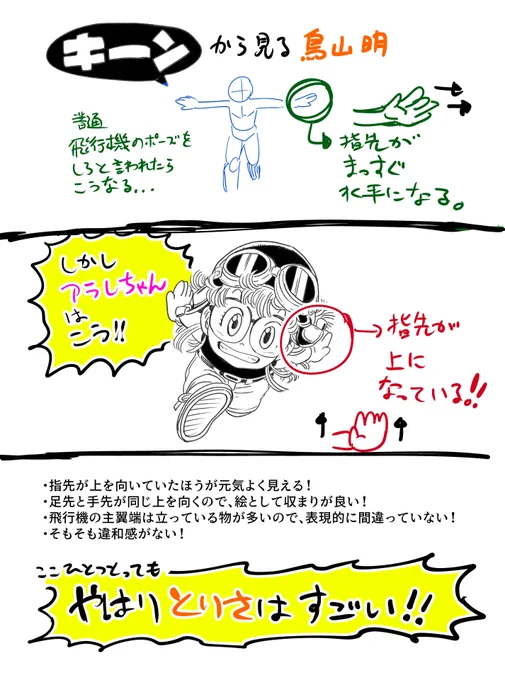 キーンから見る鳥山明
普通
飛行機のポーズを
しろと言われたら
こうなる...
指先が
まっすぐ
水平になる。
しかし
アラレちゃん
は
こう!!
指先が
上に
なっている!!
・指先が上を向いていたほうが元気よく見える！
・足先と手先が同じ上を向くので、絵として収まりが良い！
・飛行機の主翼端は立っている物が多いので、表現的に間違っていない！
・そもそも違和感がない！
ここひとつとっても
やはりとりさはすごい!!